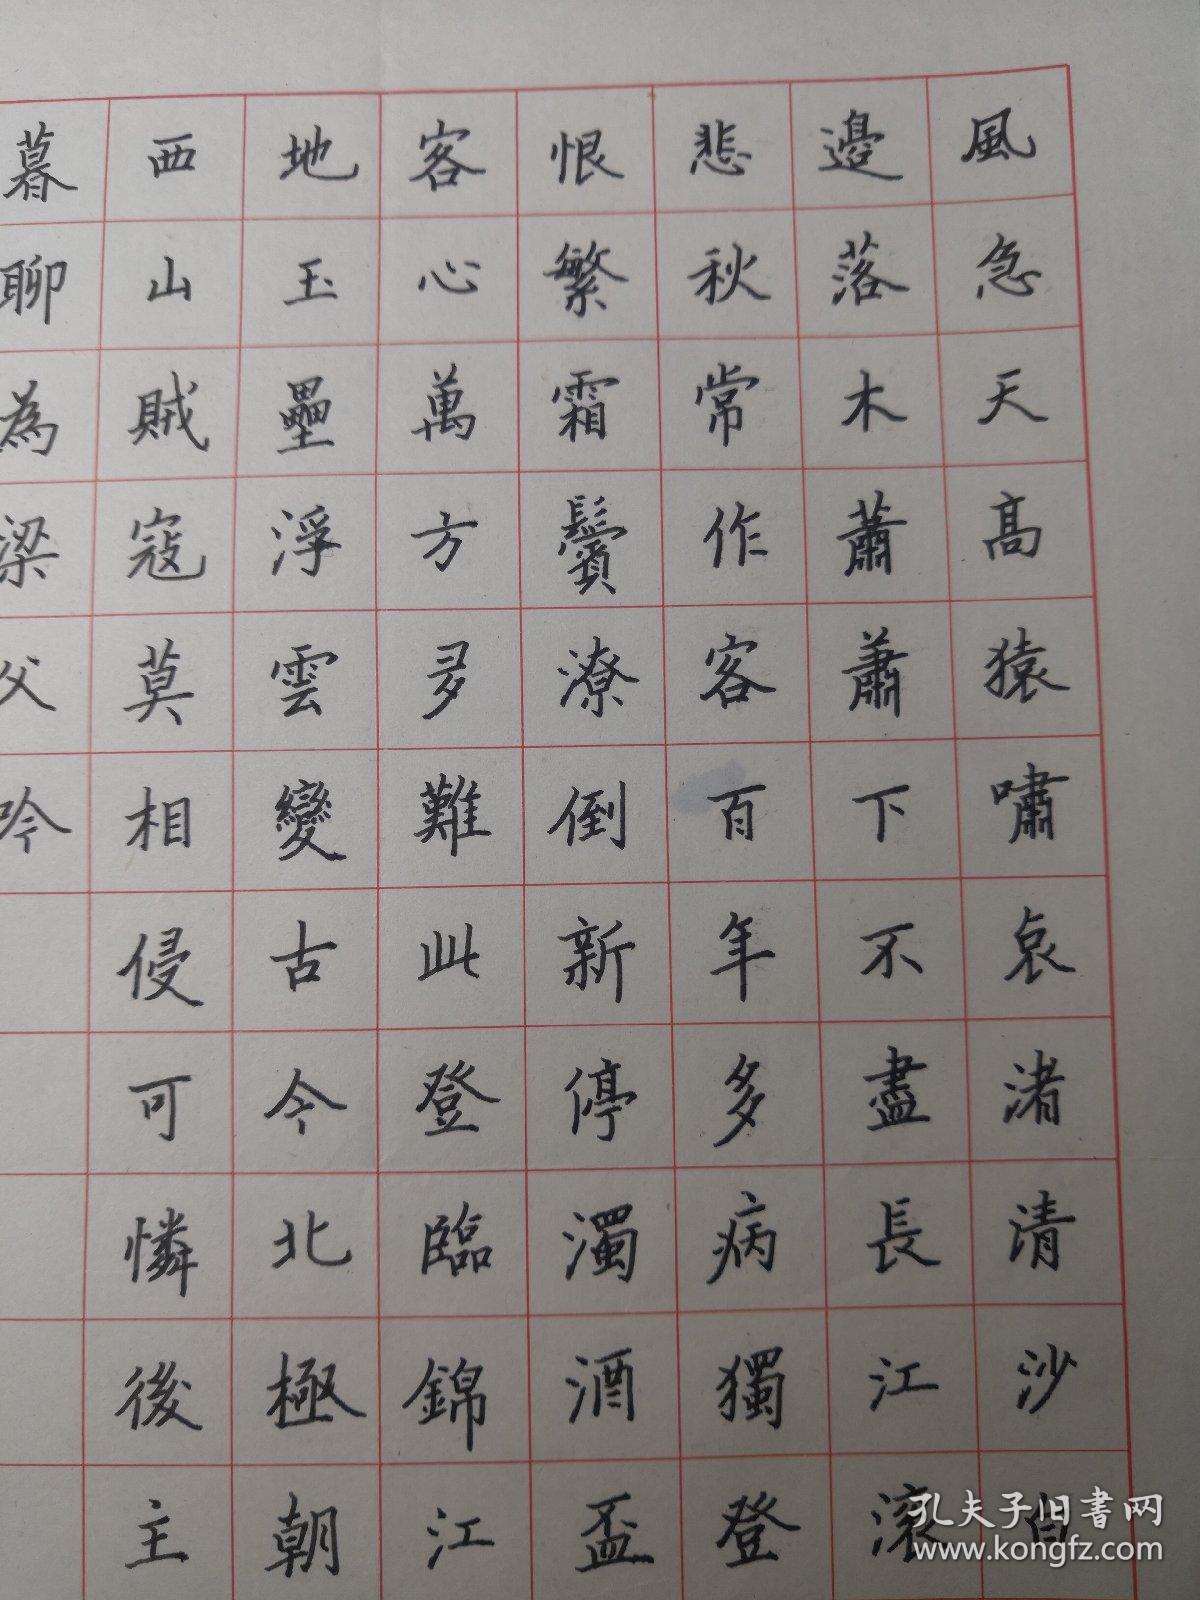 風急天高猿嘯哀渚清沙白
邊落木蕭蕭下不盡長江滾
悲秋常作客百年多病獨登
恨繁霜鬢潦倒新停濁酒盃
客心萬方多難此登臨錦江
地玉壘浮雲變古今北極朝
西山賊寇莫相侵可憐後主
暮聊為梁父吟
孔夫子旧书网
www.kongfz.com